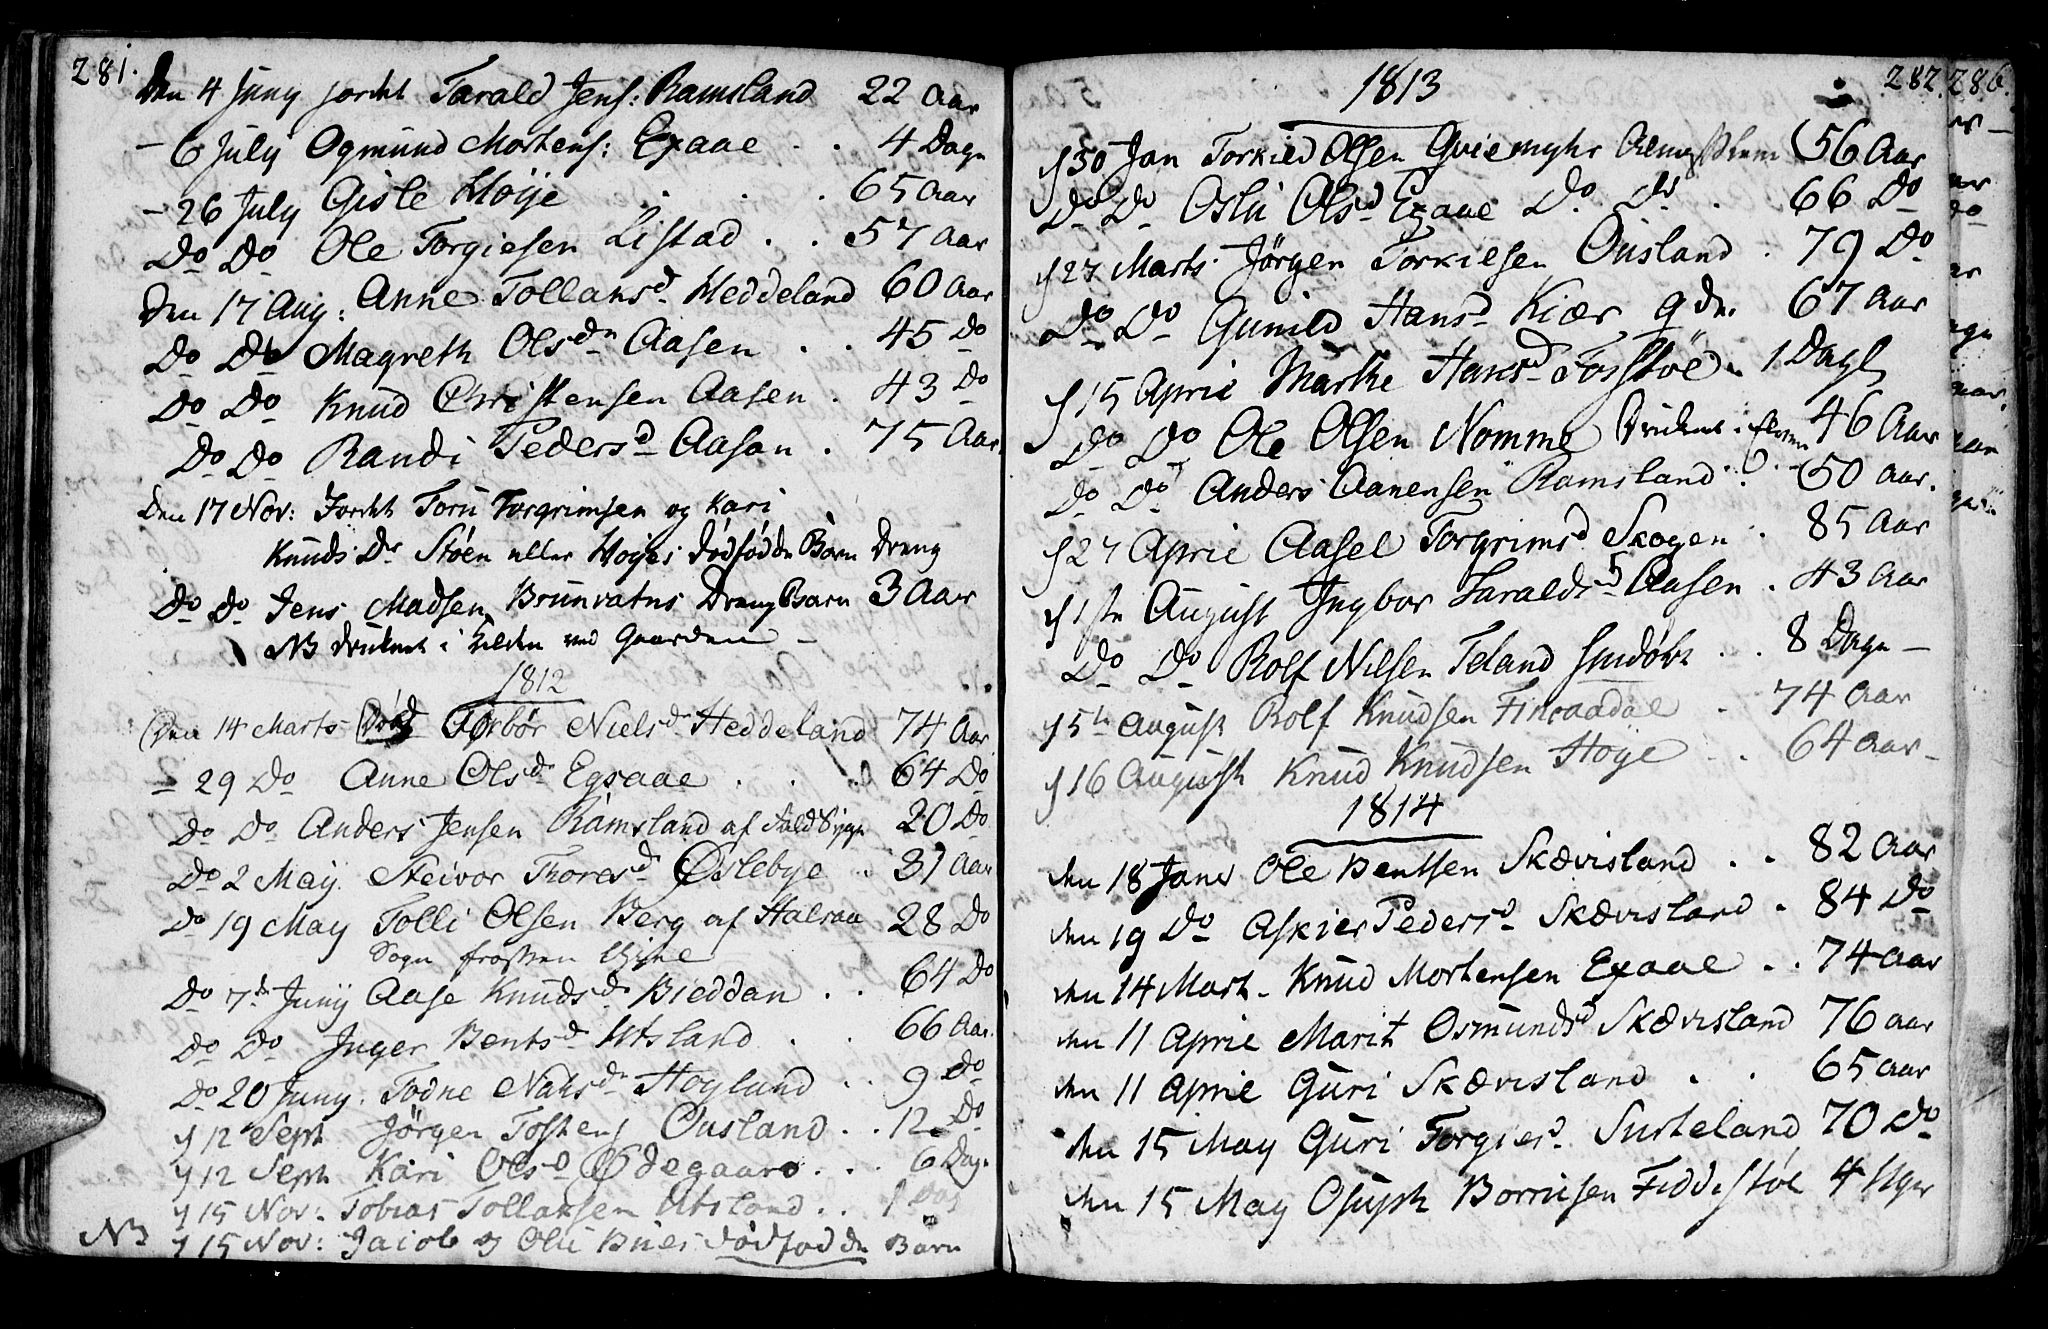 281.
Den 4 Juny jordet Tarald Jens: Ramsland 22 Aar
- 6 July Ogmund Mortens: Exaae . . 4 Dage
- 26 July Gisle Höije . . . 65 Aar
Do Do Ole Torgiesen Listad . . 57 Aar
Den 17 Aug: Anne Tollaksd Heddeland 60 Aar
Do Do Magreth Olsdr Aasen . . 45 Do
Do Do Knud Christensen Aasen . 43 Do
Do Do Randi Pedersd Aasen . 75 Aar
Den 17 Nov: Jordet Toru Torgrimsen og Kari
Knuds Dr Stöen eller Höijes dødfödde Barn Dreng
Do Do Jens Madsen Brunvatns Dreng Barn 3 Aar
NB druknet i Kilden ved Gaarden -
1812
Den 14 Marts Död Torbör Nielsdr Heddeland 74 Aar
= 29 Do Anne Olsdr Egsaae . . . 64 Do
Do Do Anders Jensen Ramsland af 20 Do
Do 2 May. Steivor Thoresd Öslebye . . 31 Aar
Do 19 May Tolli Olsen Berg af Halsaa 28 Do
Sogn
Do 7de Juny Aase Knudsdr Bieddan . . 64 Do
Do Do Inger Bentsd Utsland . . 66 Aar
Do 20 Juny. Todne Nahsdr Höyland . . 9 Do
d 12 Sept Jörgen Tostens Ousland . . 12 Do
d 12 Sept Kari Olsd Ödegaard . . . 6 Dage
d 15 Nov: Tobias Tollaksen Utsland . . 1 Dag
NB d 15 Nov: Jacob og Oluf dödfödde Barn
282.
1813
d 30 Jan Torkild Olsen Qviemyhr 56 Aar
Do Do Oslu Olsd Exaae Do. Do . 66 Do
d 27 Marts. Jörgen Torkilsen Ousland . 79 Do
Do Do Gunild Hansd Kier 67 Aar
d 15 April Marthe Hansd Fosstöl . 1 Dag
Do Do Ole Olsen Nomme Druknet i Elven 46 Aar
Do Do Anders Aanensen Ramsland . Do . 50 Aar.
d 27 April Aasel Torgrimsd Skogen . 85 Aar
d 1ste August Ingbor Taraldsd Aasen . 43 Aar
Do Do Rolf Nilsen Teland . . 8 Dage -
d 5te August Rolf Knudsen Finsaadal . 74 Aar
d 16 August Knud Knudsen Höije . . 64 Aar -
1814
den 18 Janr Ole Bentsen Skævisland . . 82 Aar
den 19 Do Askier Pedersd Skævisland . 84 Do
den 14 Mart. Knud Mortensen Exaae . . 74 Aar
den 11 April Marit Osmundsd Skævisland 76 Aar
den 11 April Guri Skævisland . . 65 Aar
den 15 May Guri Torgiesd Susteland 70 Do
den 15 May Osuph Borruisen Fiddestöl 4 Uger
286.